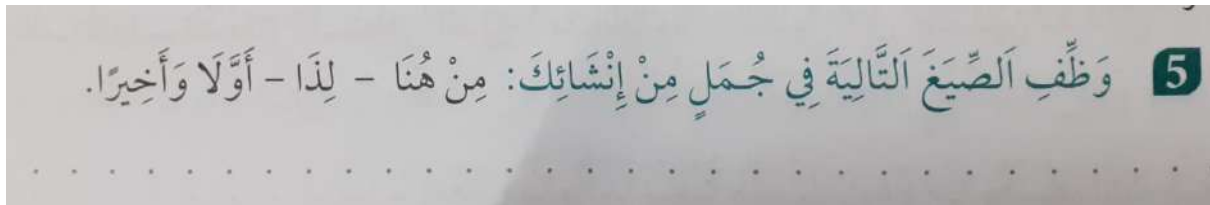 5 وَظِّفِ اَلصِّيَغَ اَلتَّالِيَةَ فِي جُمَلٍ مِنْ إِنْشَائِكَ: مِنْ هُنَا - لِذَا - أَوَّلَا وَأَخِيرًا.